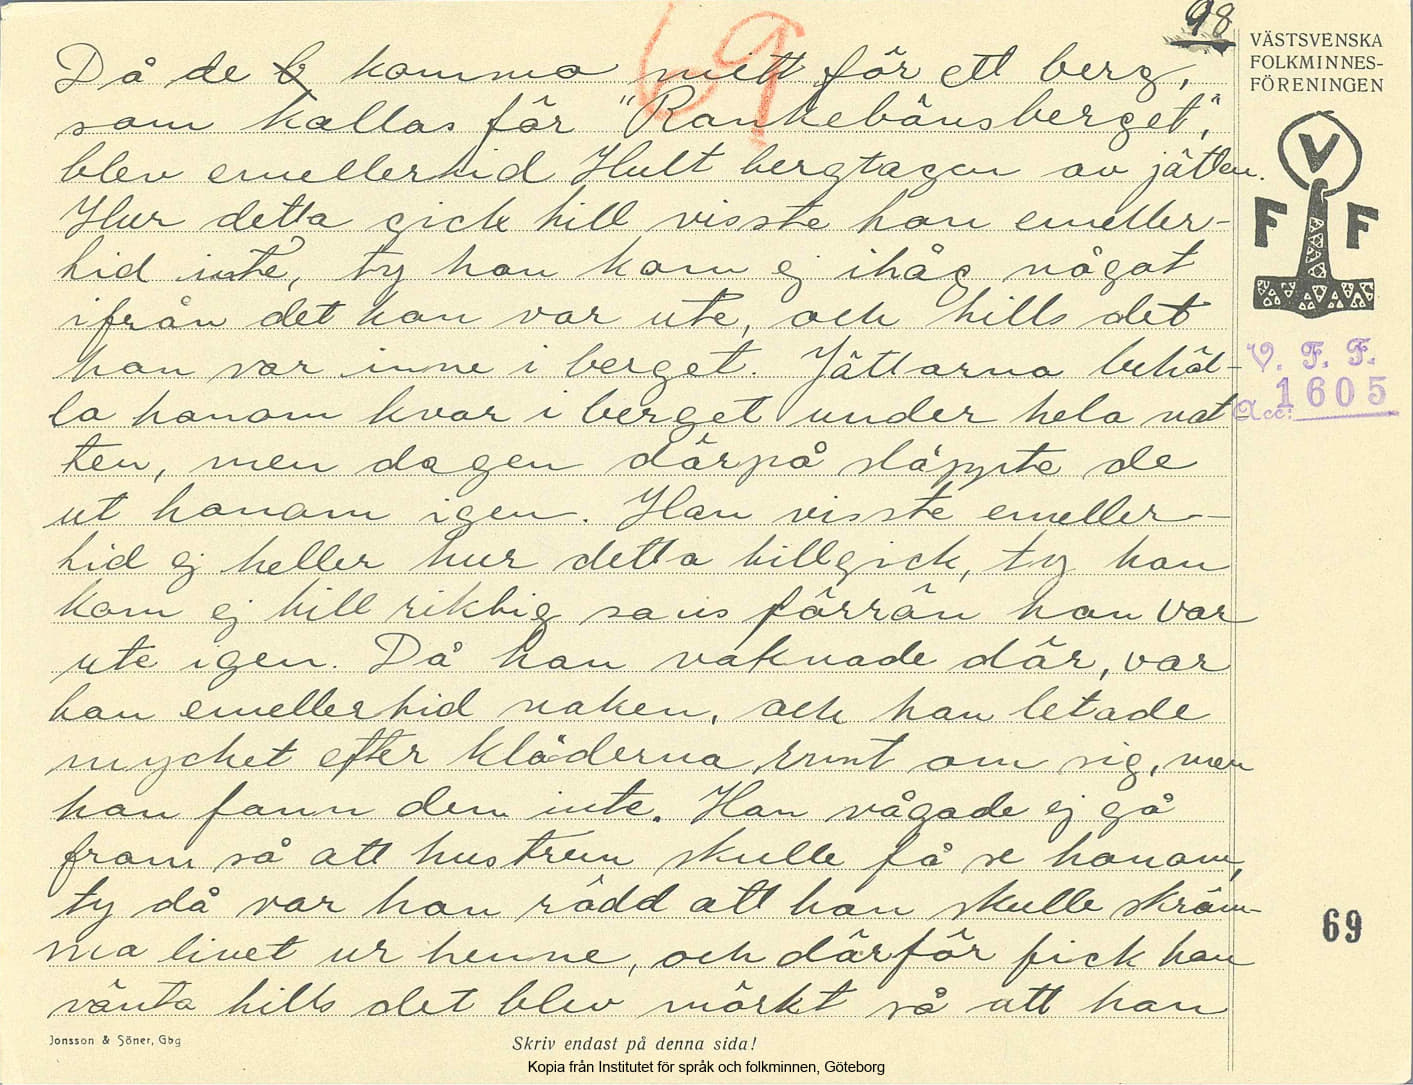 98
69
VÄSTSVENSKA
FOLKMINNES-
FÖRENINGEN
V
F F
V. F. F.
Acc: 1605
Då de komma mitt för ett berg,
som kallas för "Rankebänsberget",
blev emellertid Hult bergtagen av jätten.
Hur detta gick till visste han emeller-
tid inte, ty han kom ej ihåg något
ifrån det han var ute, och tills det
han var inne i berget. Jättarna behöl-
lo honom kvar i berget under hela nat-
ten, men dagen därpå släppte de
ut honom igen. Han visste emeller-
tid ej heller hur detta tillgick, ty han
kom ej till riktig sans förrän han var
ute igen. Då han vaknade där, var
han emellertid naken, och han letade
mycket efter kläderna runt om sig, men
han fann dem inte. Han vågade ej gå
fram så att hustrun skulle få se honom,
ty då var han rädd att han skulle skräm-
ma livet ur henne, och därför fick han
vänta tills det blev mörkt så att han
69
Jonsson & Söner, Gbg
Skriv endast på denna sida!
Kopia från Institutet för språk och folkminnen, Göteborg